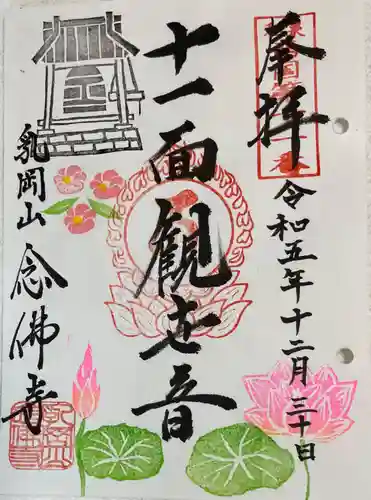 奉拝
令和五年十二月三十日
十一面観世音
乳岡山
念佛寺